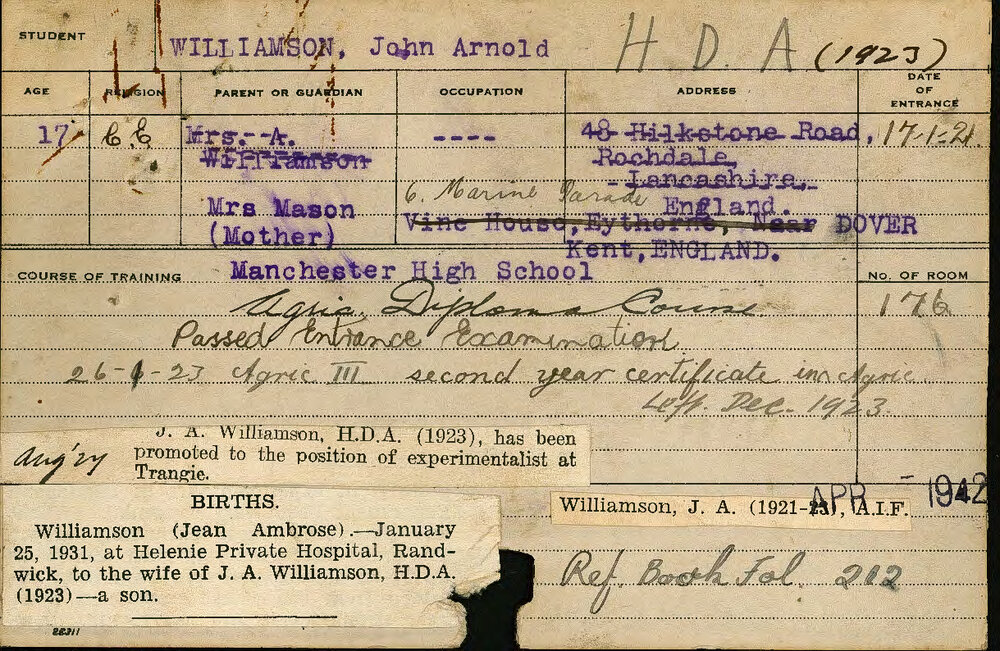 STUDENT
WILLIAMSON, John Arnold
H. D. A (1923)
AGE
RELIGION
PARENT OR GUARDIAN
OCCUPATION
ADDRESS
DATE
OF
ENTRANCE
17
C.E
Mrs. A.
Williamson
Mrs Mason
(Mother)
----
48 Hilkstone Road,
Rochdale,
Lancashire,
England.
6. Marine Parade
Vine House, Eythorne, Near DOVER
Kent, ENGLAND.
17-1-21.
COURSE OF TRAINING
Manchester High School
NO. OF ROOM
176
Agric. Diploma Course
Passed Entrance Examination
26-1-23 Agric III second year certificate in Agric.
Left. Dec. 1923.
Aug '27
J. A. Williamson, H.D.A. (1923), has been
promoted to the position of experimentalist at
Trangie.
BIRTHS.
Williamson (Jean Ambrose).—January
25, 1931, at Helenie Private Hospital, Rand-
wick, to the wife of J. A. Williamson, H.D.A.
(1923)—a son.
Williamson, J. A. (1921-23), A.I.F.
APR - 1942
Ref. Book Fol. 202